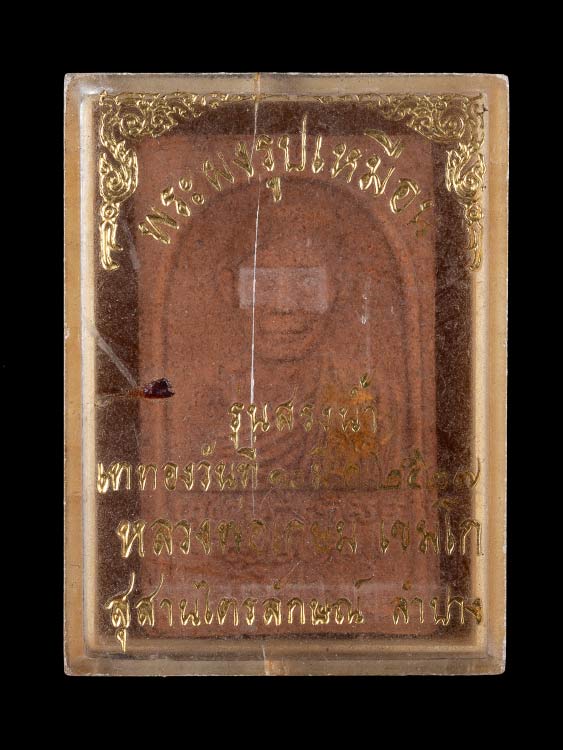 พระผงรูปเหมือน
รุ่นสรงน้ำ
เททองวันที่ ๒๕๑๗
หลวงพ่อเกษม เขมโก
สุสานไตรลักษณ์ ลำปาง